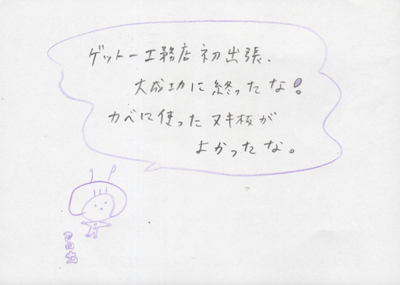 ゲットー工務店初出張、
大成功に終ったな!
カベに使ったヌキ板が
よかったな。